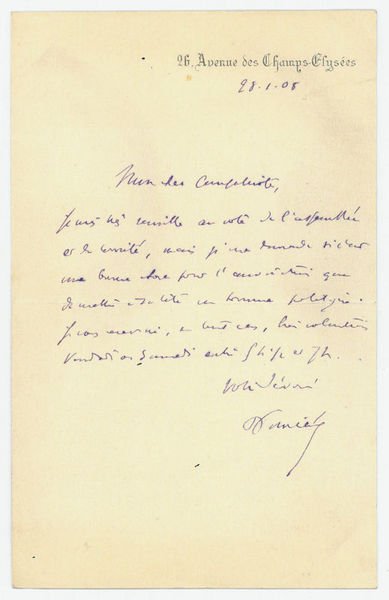 26, Avenue des Champs-Elysées
28.1.08
Mon cher Compatriote,
Je suis très sensible au vote de l'assemblée
et du comité, mais je me demande si c'est
une bonne chose pour l'association que
de mettre à sa tête un homme politique.
Je vous recevrai, en tout cas, très volontiers
vendredi ou samedi entre 5h ½ et 7h.
Votre dévoué